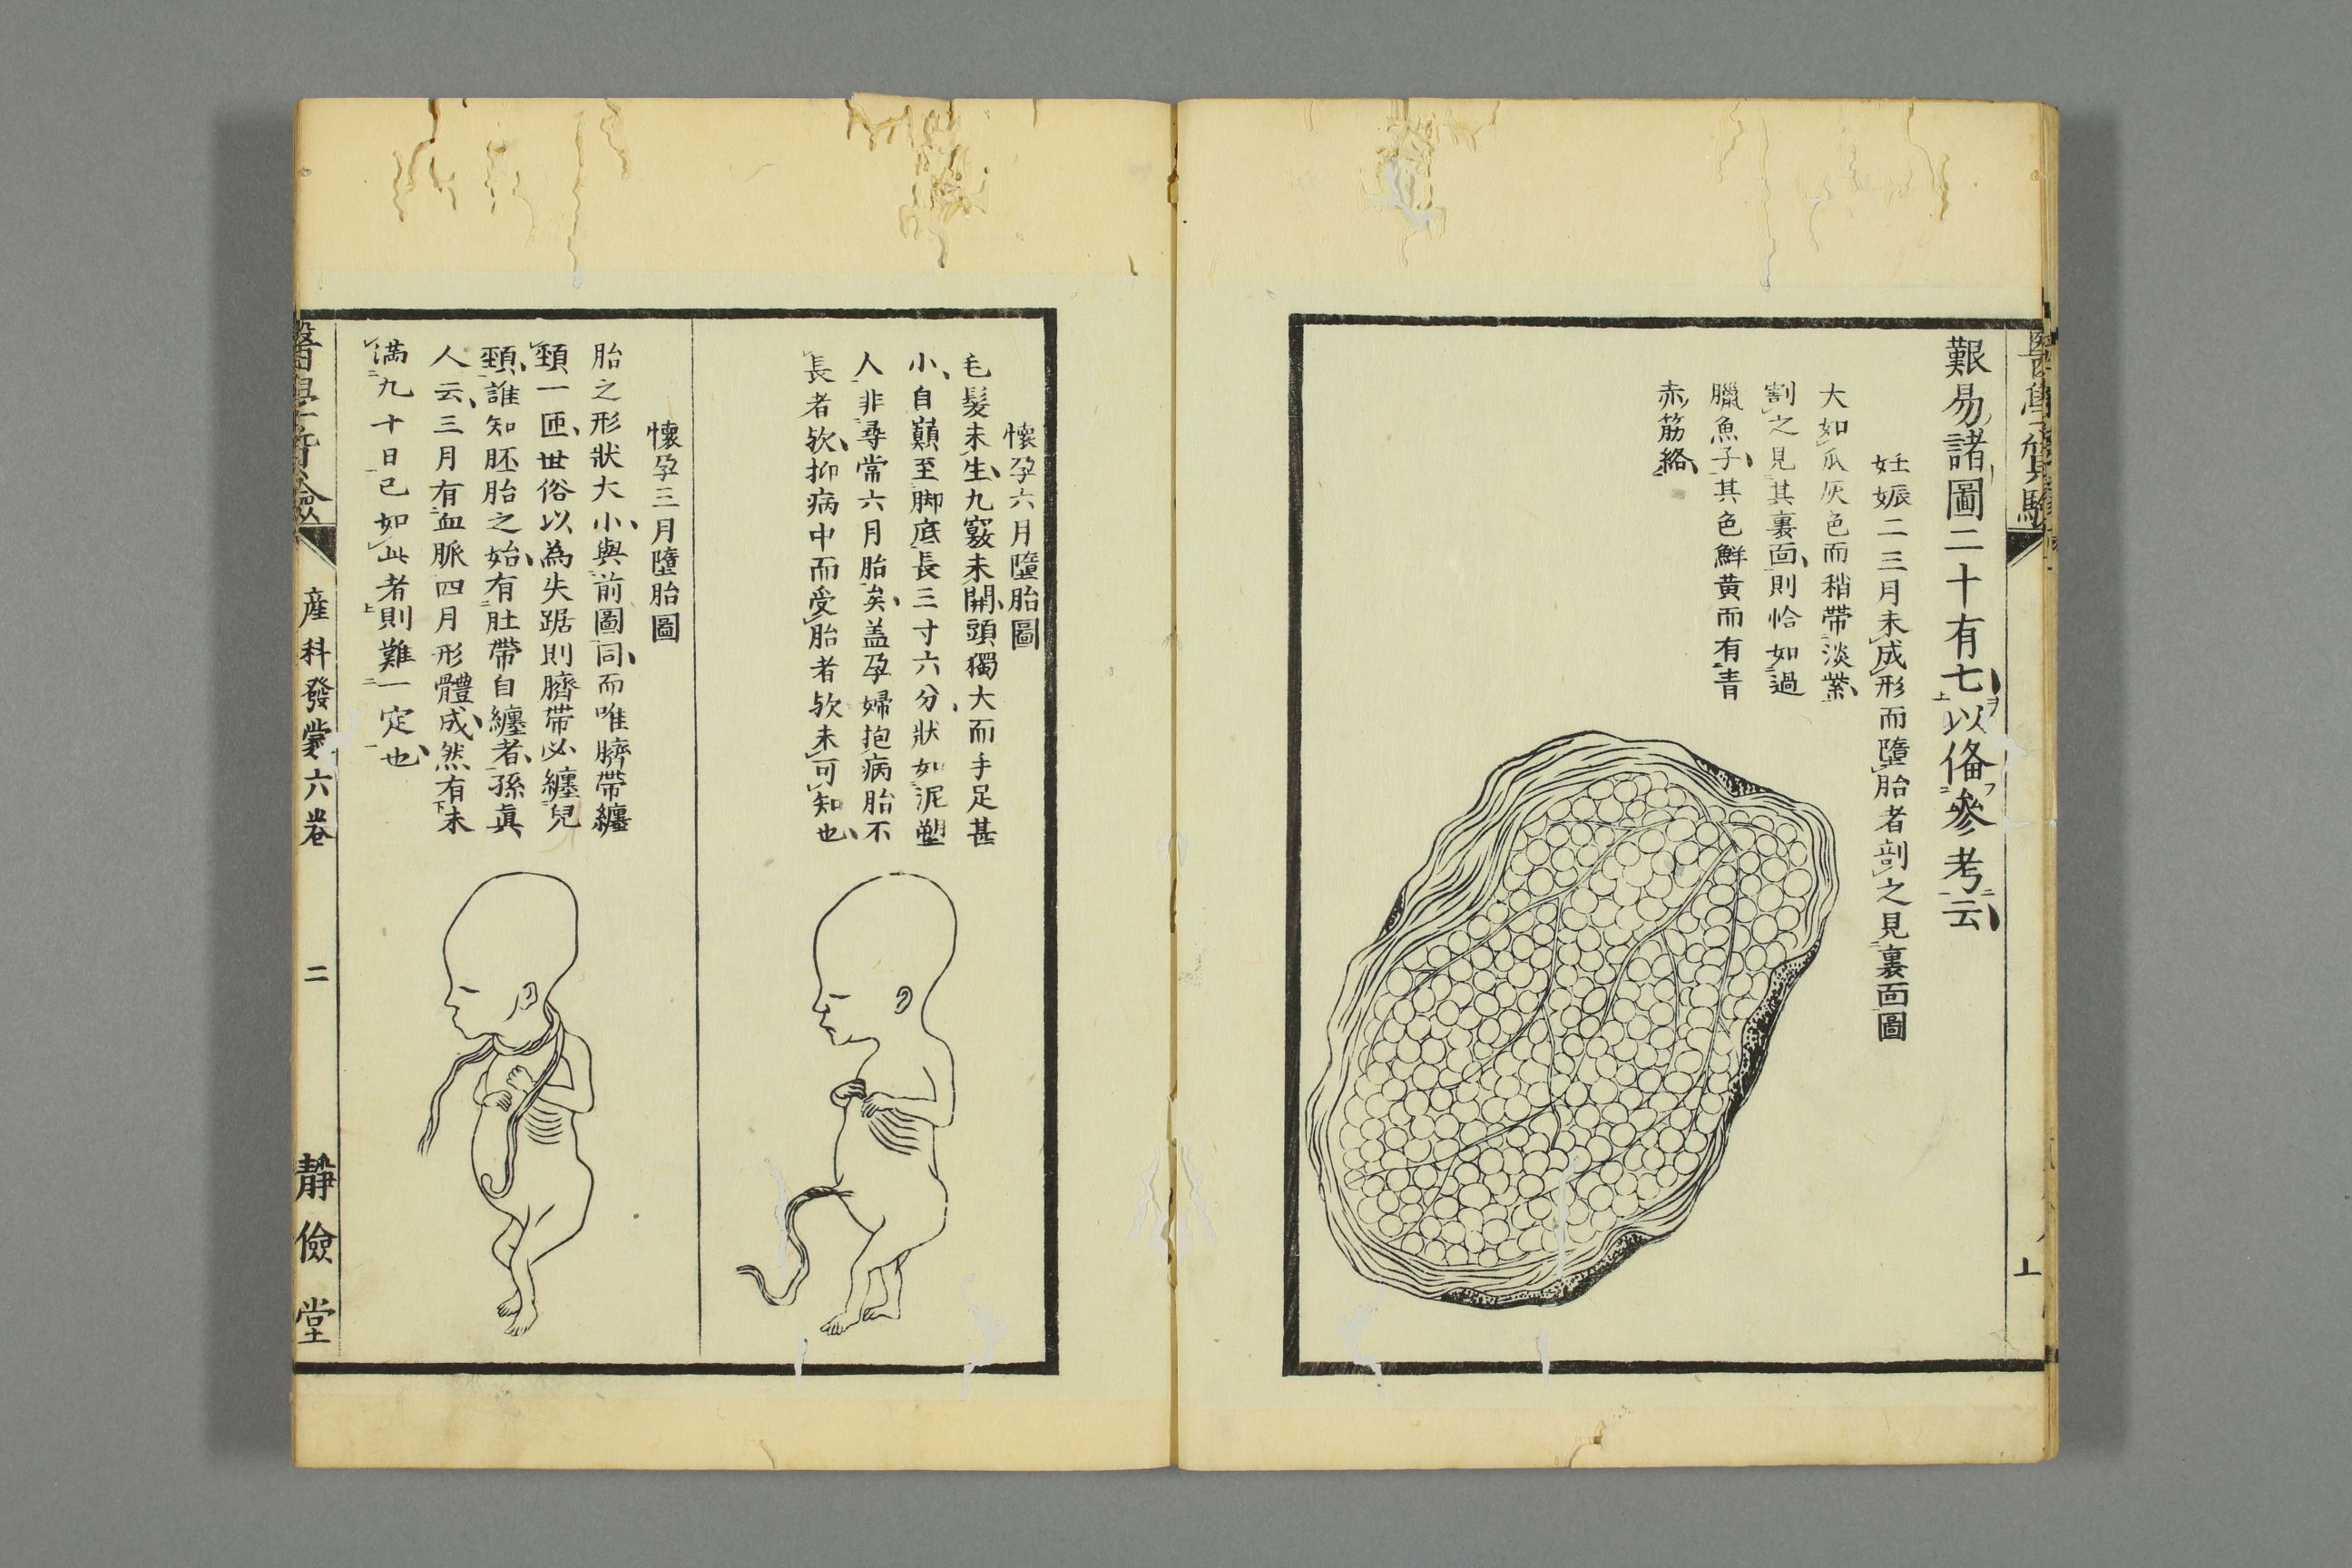 艱易諸圖二十有七以偹參考云
妊娠二三月未成形而墮胎者剖之見裏面圖
大如瓜灰色而稍帶淡紫
割之見其裏面則恰如過
臘魚子其色鮮黄而有青
赤筋絡
懷孕六月墮胎圖
毛髮未生九竅未開頭獨大而手足甚
小自顚至脚底長三寸六分狀如泥塑
人非尋常六月胎矣盖孕婦抱病胎不
長者欤抑病中而受胎者欤未可知也
懷孕三月墮胎圖
胎之形狀大小與前圖同而唯臍帶纏
頸一匝世俗以為失踞則臍帶必纏兒
頸誰知胚胎之始有肚帶自纏者孫眞
人云三月有血脈四月形體成然有未
満九十日已如此者則難一定也
産科發蒙六卷 二 靜儉堂